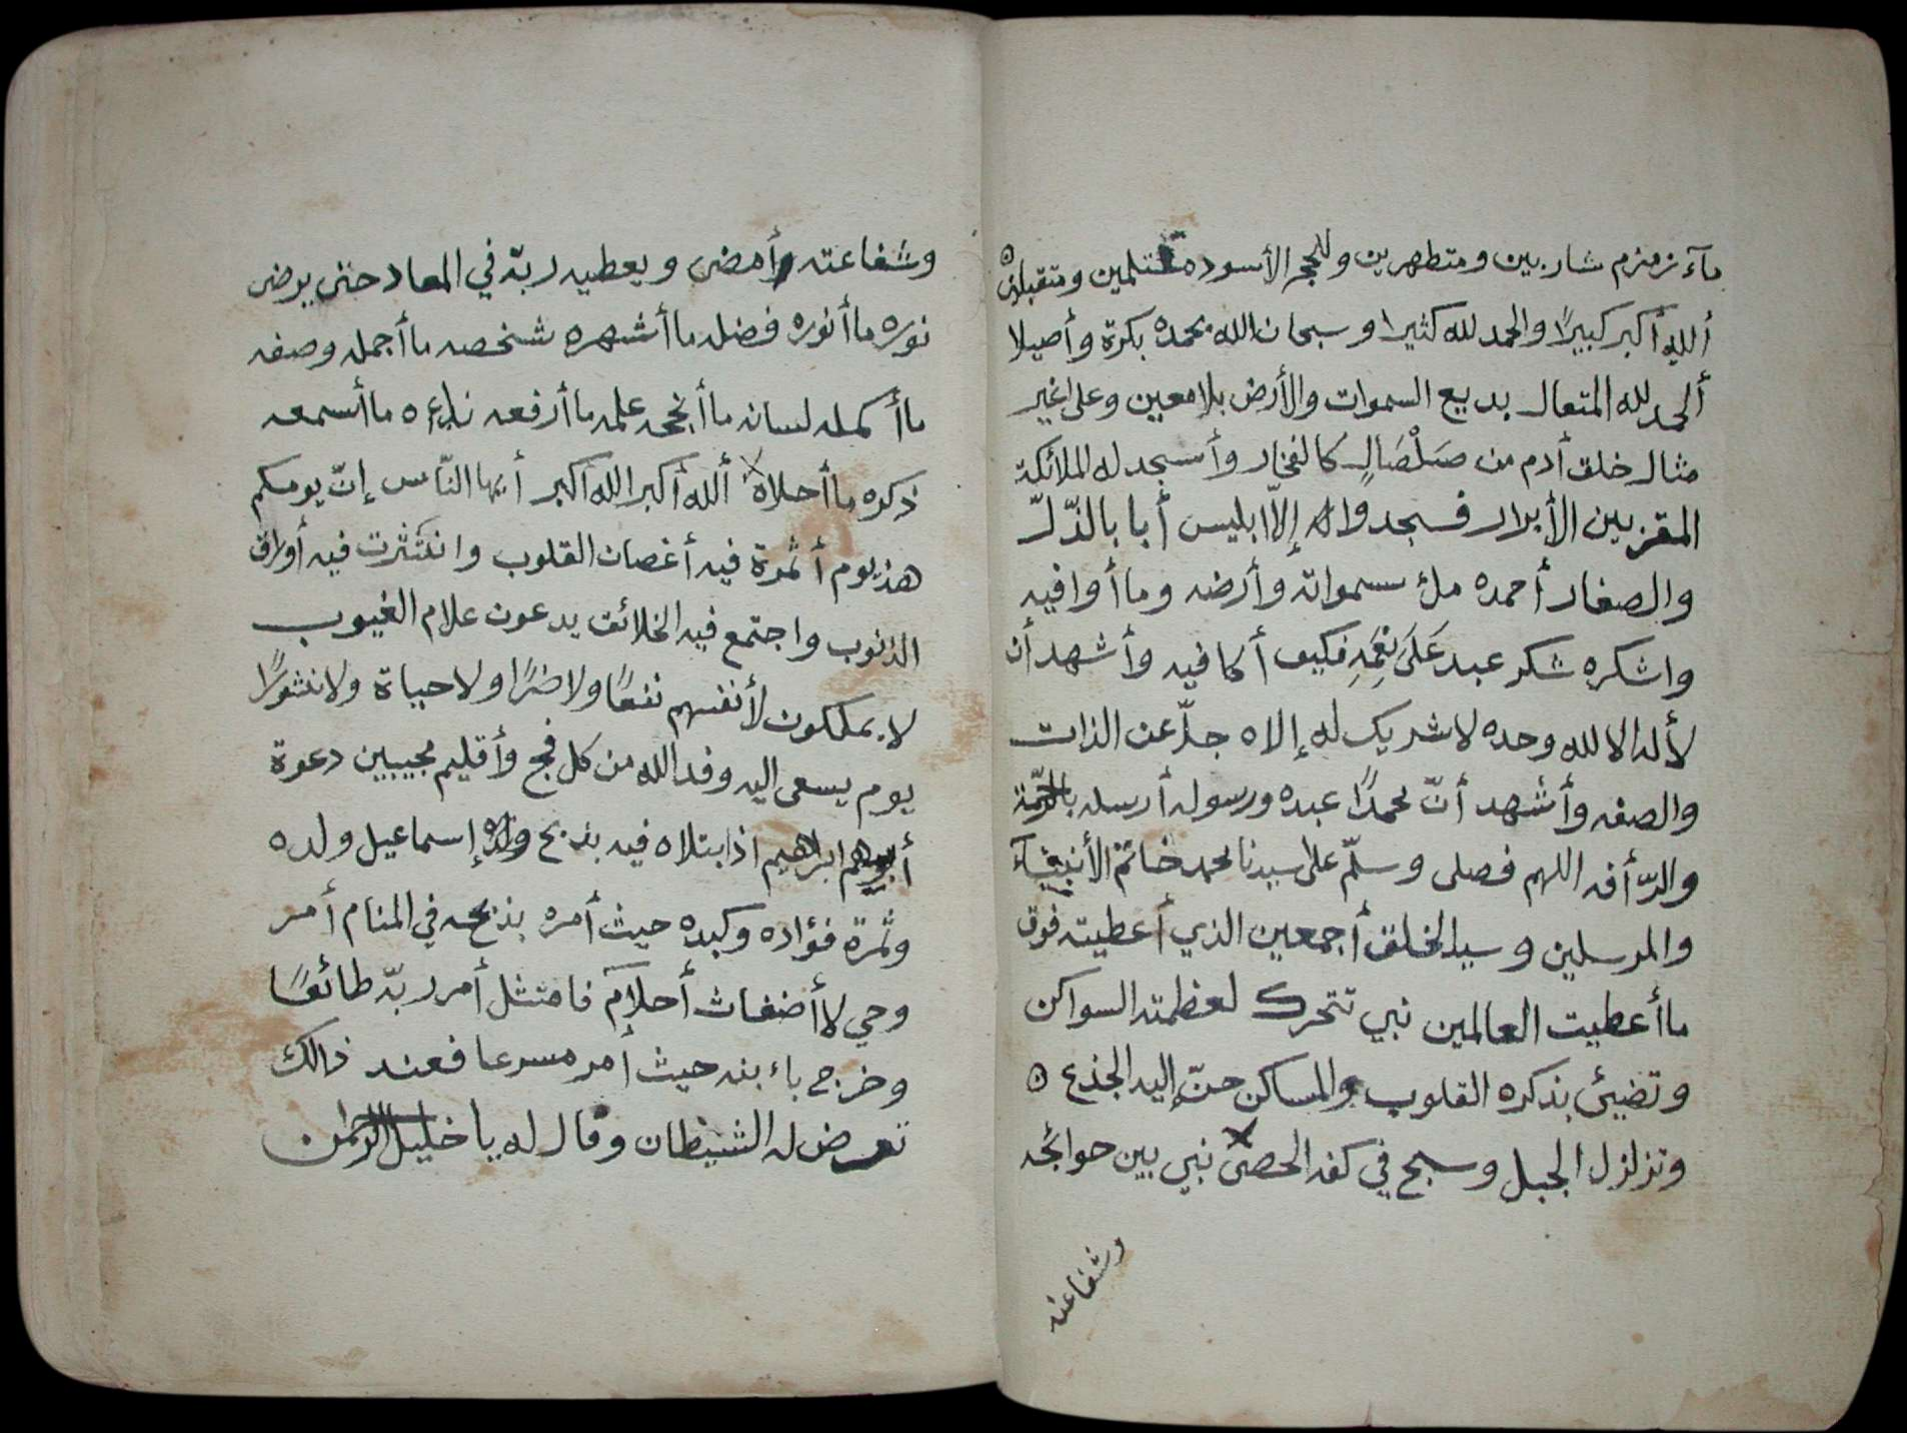 مآء زمزم شاربين ومتطهرين وللحجر الأسود مستلمين ومتقبلين
ألله أكبر كبيرًا والحمد لله كثيرا وسبحان الله بحمده بكرة وأصيلا
ألحمد لله المتعال بديع السموات والأرض بلا معين وعلى غير
مثال خلق أدم من صَلْصَالٍ كالفخار وأسجد له الملائكة
المقربين الأبرار فسجدوا له إلّا ابليس أبا بالذّلّ
والصغار أحمده ملئ سمواته وأرضه وما أوافيه
واشكره شكر عبد عَلَى نِعَمِهِ فكيف أكافيه وأشهد أن
لأله الا لله وحده لا شريك له إلاه جلّ عن الذات
والصفه وأشهد أنّ محمدًا عبده ورسوله أرسله بالرّحمة
والرّأفه اللهم فصلى وسلّم على سيدنا محمد خاتم الأنبيآء
والمرسلين وسيد الخلق أجمعين الذي أعطيته فوق
ما أعطيت العالمين نبي تتحرك لعظمته السواكن
وتضيئ بذكره القلوب والمساكن حنّ إليه الجذع
وتزلزل الجبل وسبح في كفه الحصى نبي بين حوائجه
وشفاعته
وشفاعته وأمضى ويعطيه ربّه في المعاد حتى يرضى
نوره ما أنوره فضله ما أشهره شخصه ما أجمله وصفه
ما أكمله لسانه ما أنجحه علمه ما أرفعه نداءه ما أسمعه
ذكره ما أحلاه ألله أكبر الله أكبر أيها النّاس إنّ يومكم
هذ يوم أثمرة فيه أغصان القلوب وانتثرت فيه أوراق
الذنوب واجتمع فيه الخلائق يدعون علام الغيوب
لا يملكون لأنفسهم نفعًا ولا ضرًا ولا حياة ولا نشورًا
يوم يسعى اليه وفد الله من كل فج وأقليم مجيبين دعوة
أبيهم ابراهيم اذا بتلاه فيه بذبح ولده إسماعيل ولده
وثمرة فؤاده وكبده حيث أمره بذبحه في المنام أمر
وحي لا أضغاث أحلام فامتثل أمر ربّه طائعًا
وخرج باءبنه حيث أمر مسرعا فعند ذالك
تعرض له الشيطان وقال له يا خليل الرحمن